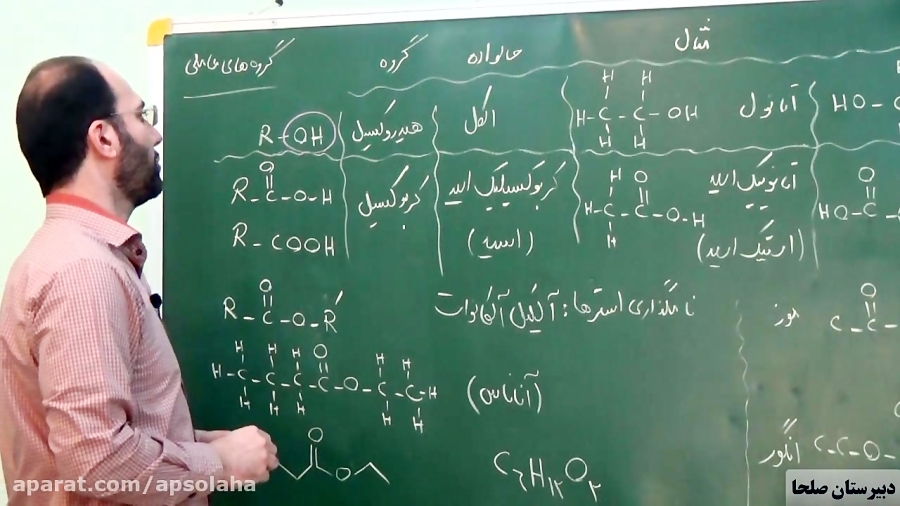 گروه‌های عاملی گروه خانواده مثال
R-OH هیدروکسیل الکل اتانول HO-
R-C-O-H کربوکسیل کربوکسیلیک اسید اتانوئیک اسید HO-C
R-COOH (اسید) (استیک اسید)
نامگذاری استرها: آلکیل آلکانوات
R-C-O-R′ موز C-C-
(آناناس)
انگور C-C-O-
C₆H₁₂O₂
aparat.com/apsolaha
دبیرستان صلحا